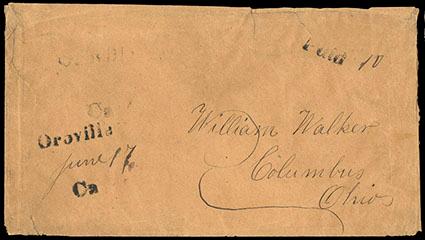 Paid 10
Ca
Oroville
June 17
Ca
William Walker
Columbus
Ohio